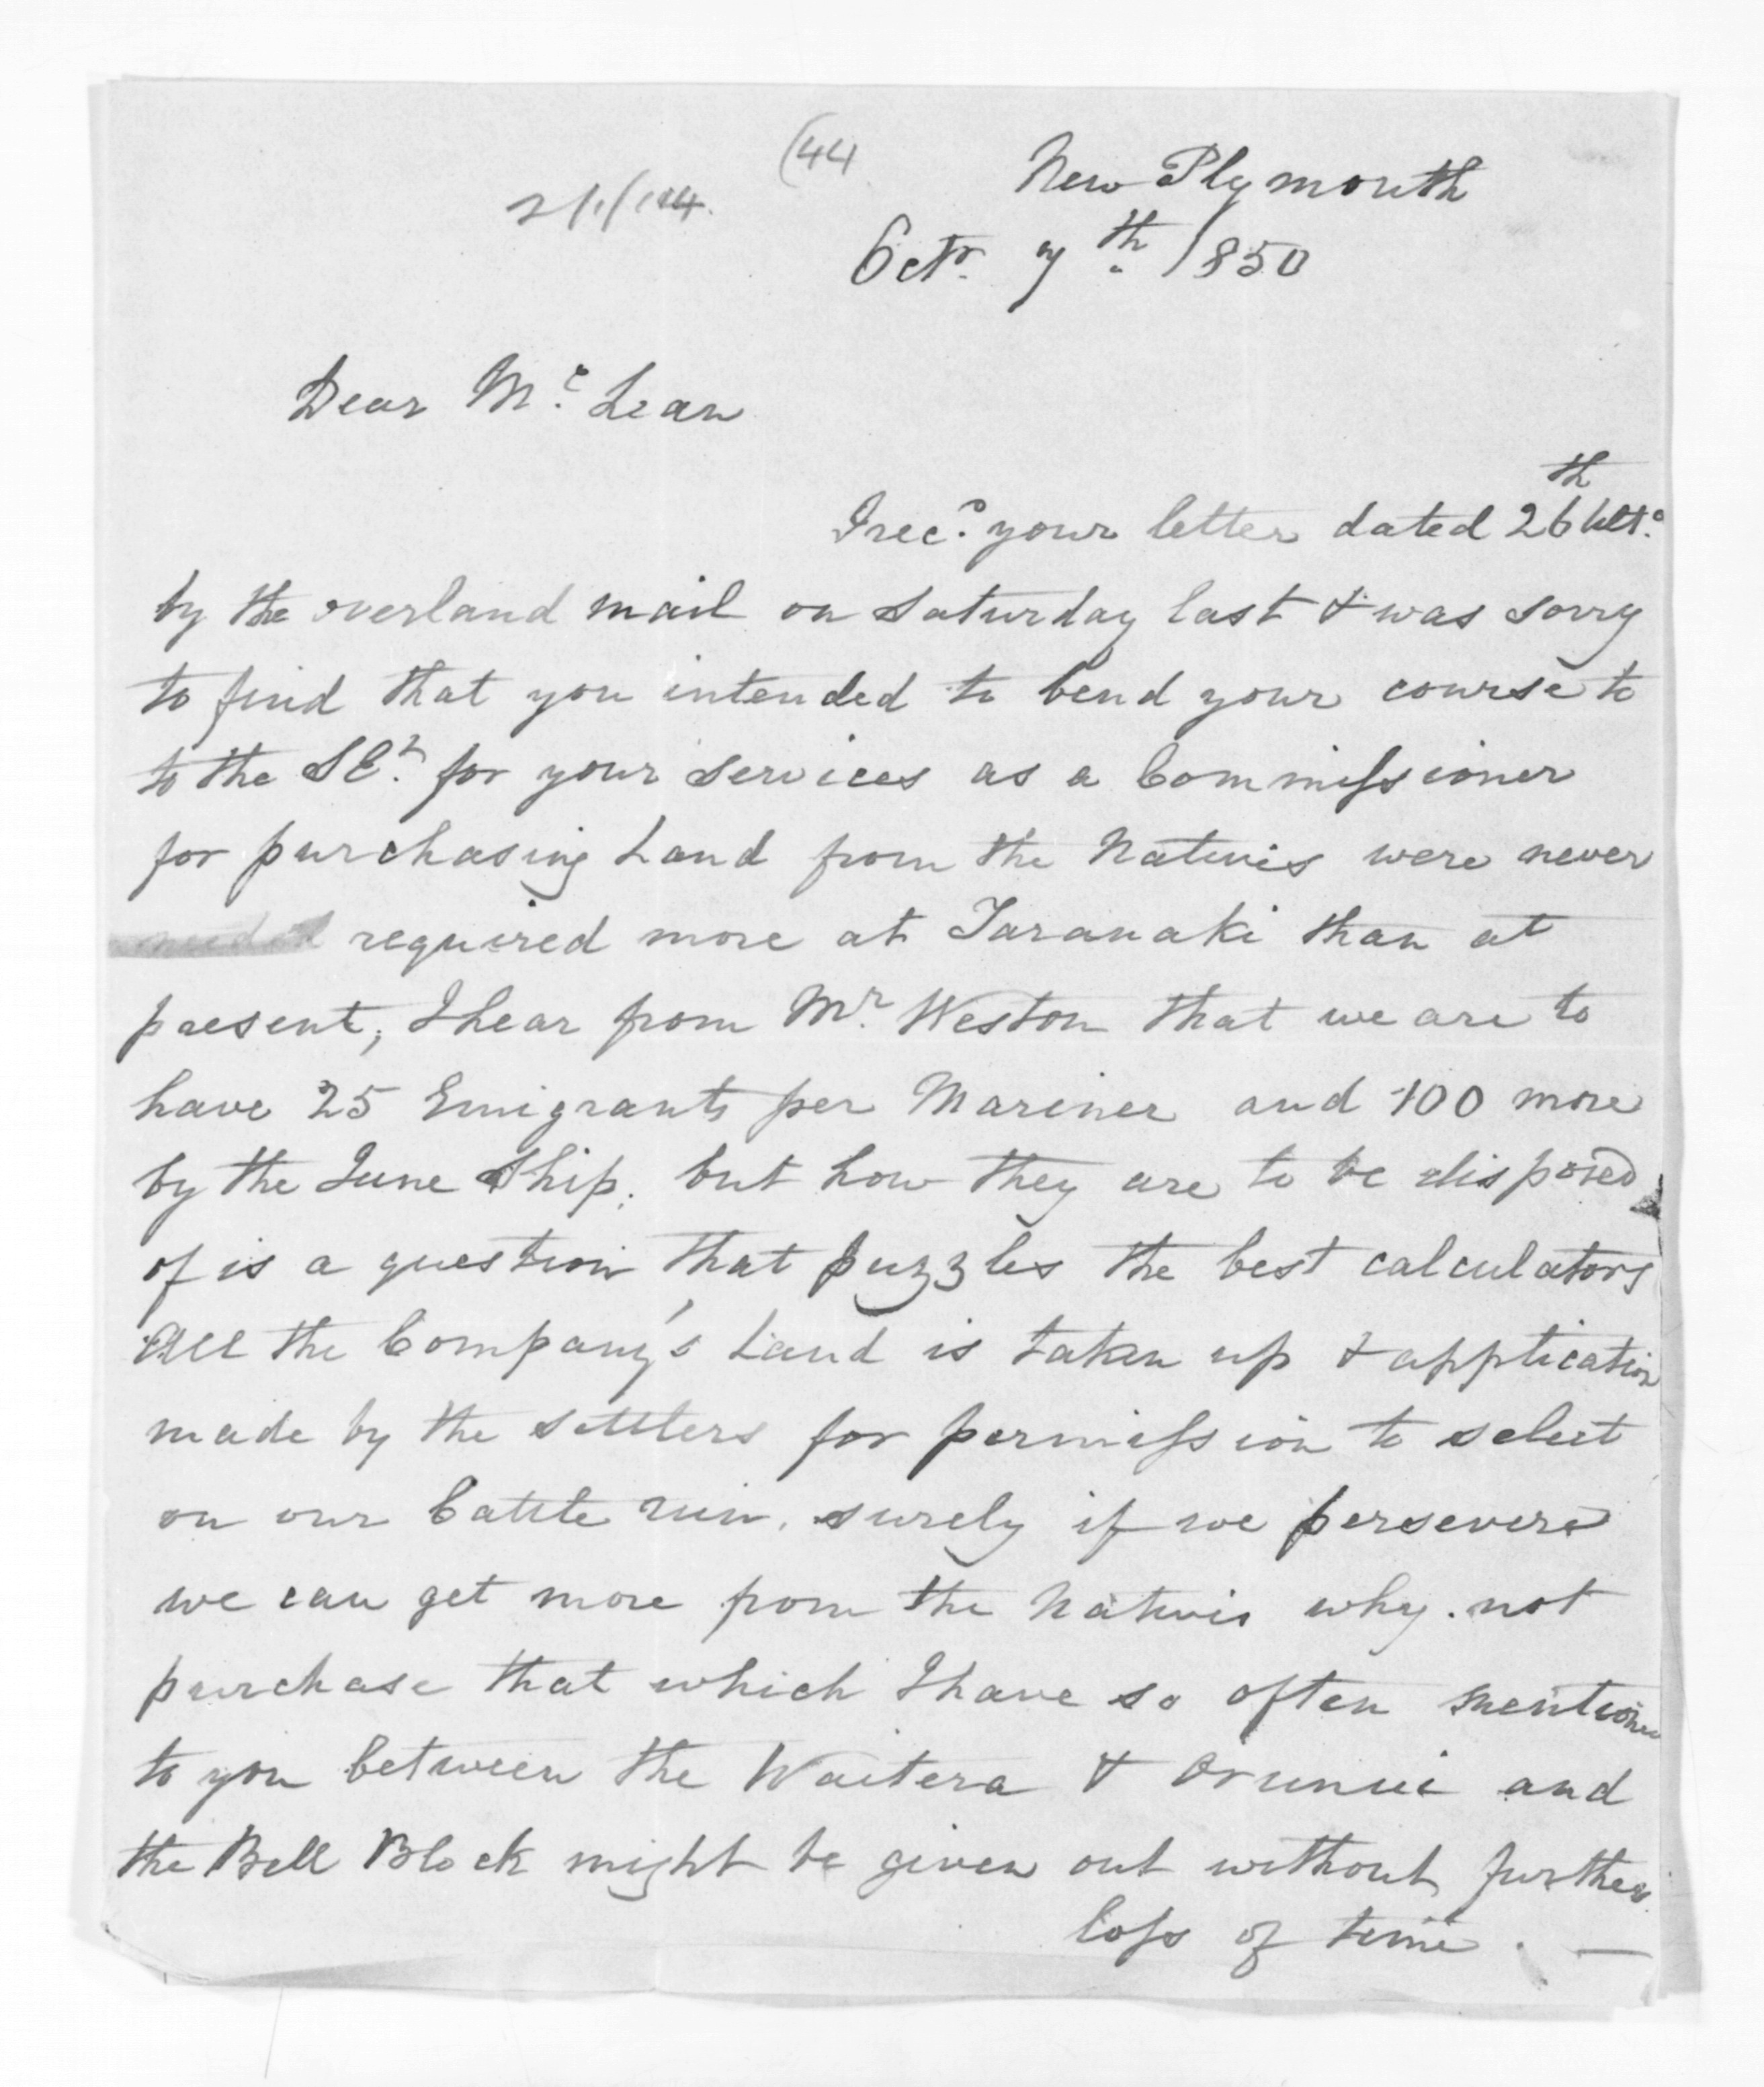 (44
New Plymouth
Octr. 7th. 1850
Dear Mc. Lean
I recd. your letter dated 26th Ulto.
by the overland mail on Saturday last & was sorry
to find that you intended to bend your course to
to the SEd. for your services as a Commissioner
for purchasing Land from the Natives were never
needed required more at Taranaki than at
present, I hear from Mr. Weston that we are to
have 25 Emigrants per Mariner and 100 more
by the June Ship. but how they are to be disposed
of is a question that puzzles the best calculators
All the Company's Land is taken up & application
made by the settlers for permission to select
on our Cattle run. surely if we persevere
we can get more from the Natives why not
purchase that which I have so often mentioned
to you between the Waitera & Onunui and
the Bell Block might be given out without further
loss of time. —